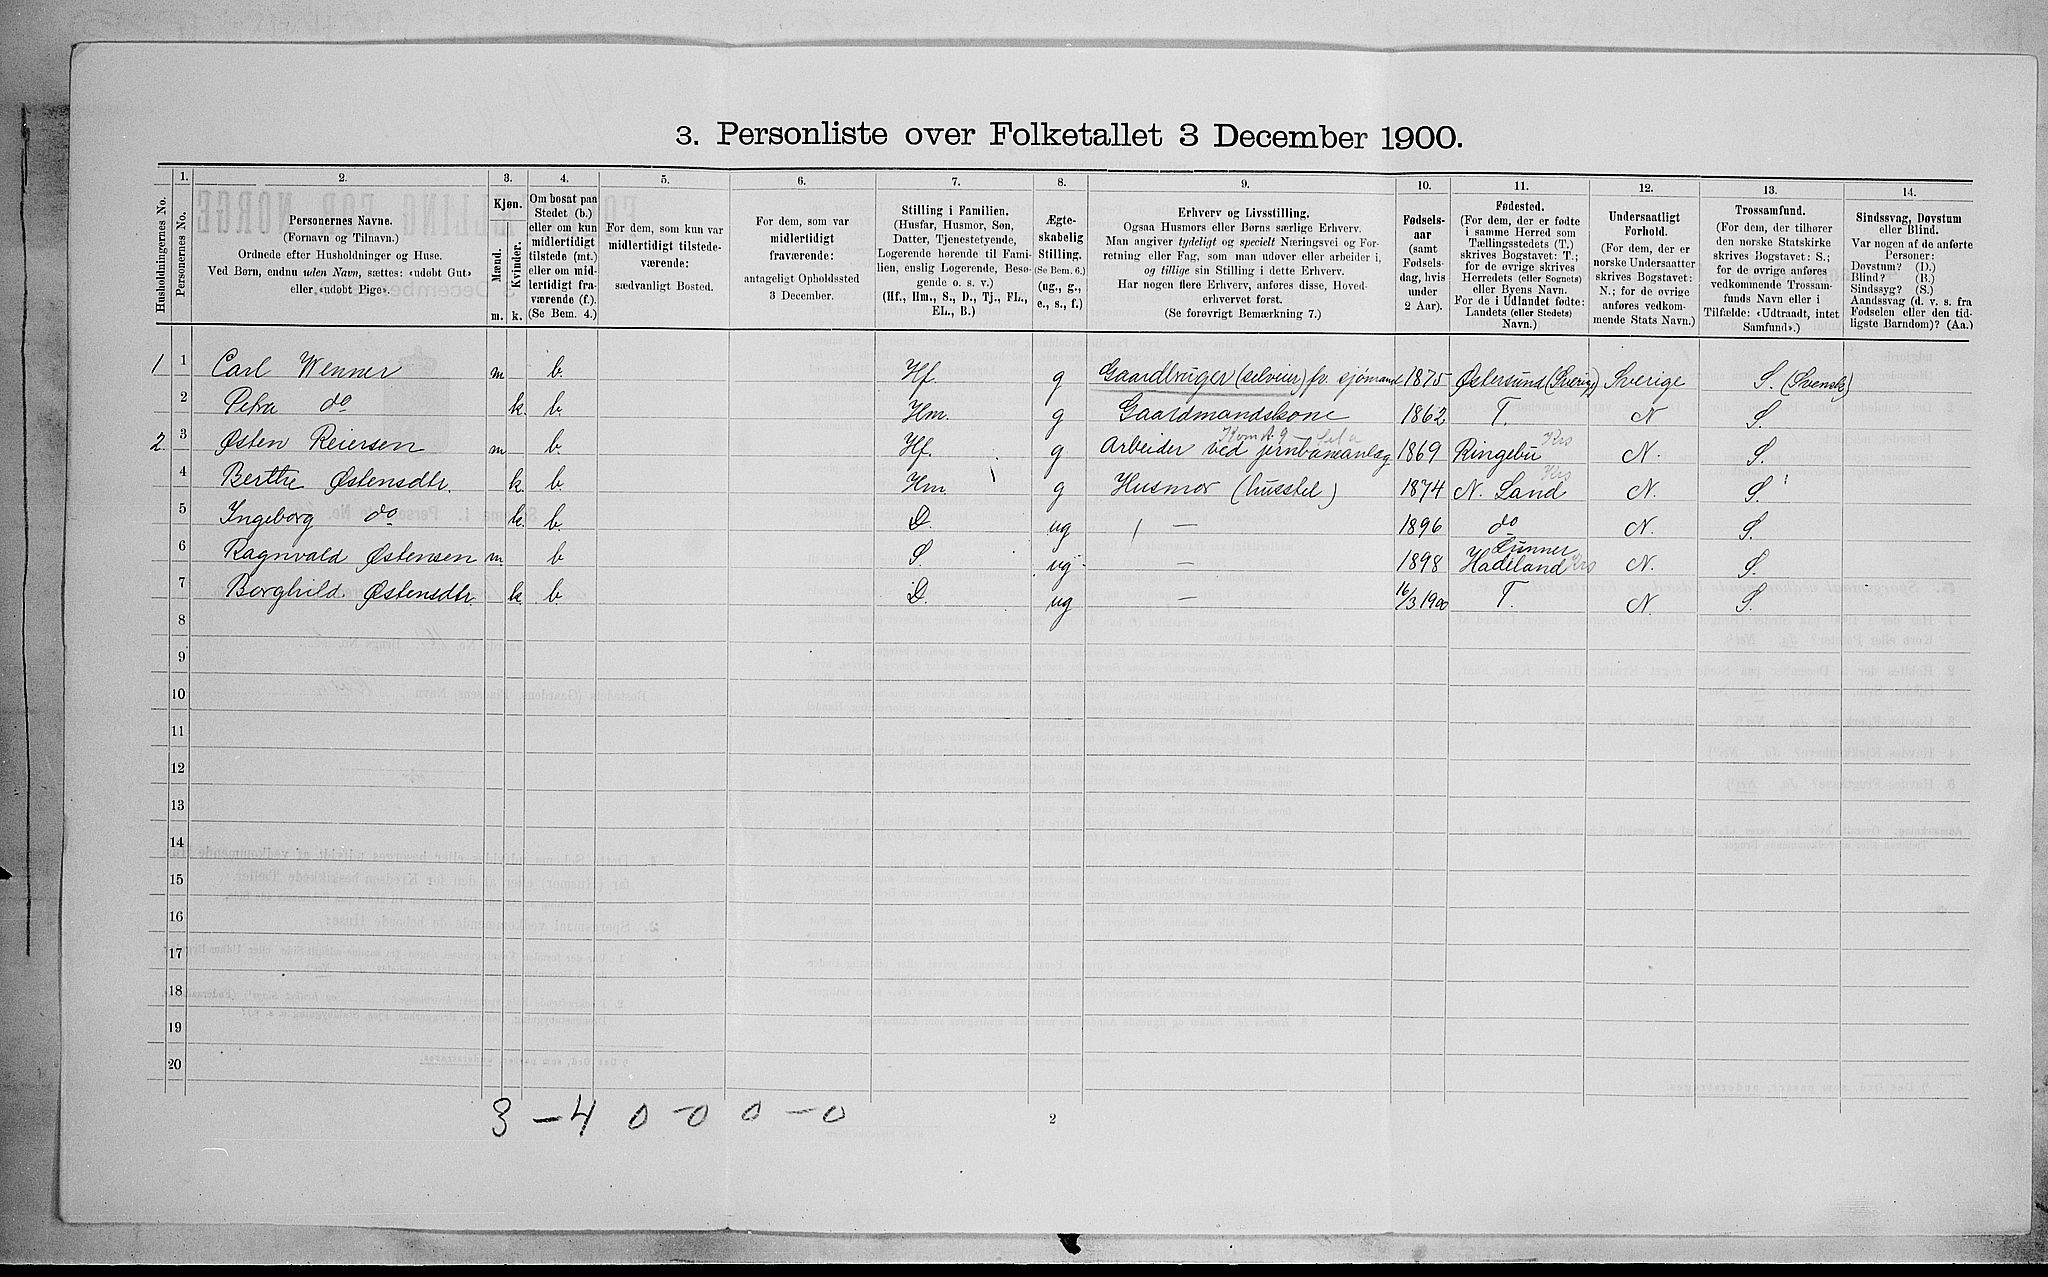 3. Personliste over Folketallet 3 December 1900.
Husholdningernes No.
1. Personernes No.
2. Personernes Navne. (Fornavn og Tilnavn.) Ordnede efter Husholdninger og Huse. Ved Børn, endnu uden Navn, sættes: «udøbt Gut» eller «udøbt Pige».
3. Kjøn. Mænd. m. Kvinder. k.
4. Om bosat paa Stedet (b.) eller om kun midlertidigt tilstede (mt.) eller om midlertidigt fraværende (f.). (Se Bem. 4.)
5. For dem, som kun var midlertidigt tilstedeværende: sædvanligt Bosted.
6. For dem, som var midlertidigt fraværende: antageligt Opholdssted 3 December.
7. Stilling i Familien. (Husfar, Husmor, Søn, Datter, Tjenestetyende, Logerende hørende til Familien, enslig Logerende, Besøgende o. s. v.) (Hf., Hm., S., D., Tj., FL., EL., B.)
8. Ægteskabelig Stilling. (Se Bem. 6.) (ug., g., e., s., f.)
9. Erhverv og Livsstilling. Ogsaa Husmors eller Børns særlige Erhverv. Man angiver tydeligt og specielt Næringsvei og Forretning eller Fag, som man udøver eller arbeider i, og tillige sin Stilling i dette Erhverv. Har nogen flere Erhverv, anføres disse, Hovederhvervet først. (Se forøvrigt Bemærkning 7.)
10. Fødselsaar (samt Fødselsdag, hvis under 2 Aar).
11. Fødested. (For dem, der er fødte i samme Herred som Tællingsstedets (T.) skrives Bogstavet: T.; for de øvrige skrives Herredets (eller Sognets) eller Byens Navn. For de i Udlandet fødte: Landets (eller Stedets) Navn.)
12. Undersaatligt Forhold. (For dem, der er norske Undersaatter skrives Bogstavet: N.; for de øvrige anføres vedkommende Stats Navn.)
13. Trossamfund. (For dem, der tilhører den norske Statskirke skrives Bogstavet: S.; for de øvrige anføres vedkommende Trossamfunds Navn eller i Tilfælde: «Udtraadt, intet Samfund».)
14. Sindssvag, Døvstum eller Blind. Var nogen af de anførte Personer: Døvstum? (D.) Blind? (B.) Sindssyg? (S.) Aandssvag (d. v. s. fra Fødselen eller den tidligste Barndom)? (Aa.)
1 1 Carl Wenner m b. Hf. g Gaardbruger (selveier) fv. sjømand 1875 Østersund (Sverige) Sverige S. (Svensk)
2 Petra do k. b. Hm. g Gaardmandskone 1862 T. N S.
2. 3 Østen Reiersen m b. Hf. g Arbeider ved jernbaneanlæg 1869 Ringebu Krs N. S.
4 Berthe Østensdtr. k. b Hm. g Husmor (husstel) 1874 N. Land Krs N. S.
5 Ingeborg do k. b. D. ug — 1896 do N. S.
6 Ragnvald Østensen m b S. ug — 1898 Hadeland Krs N. S.
7 Borghild Østensdtr. k. b. D. ug — 16/3 1900 T. N. S.
8
9
10
11
12
13
14
15
16
17
18
19
20
3 – 4 0 – 0 0 – 0
2